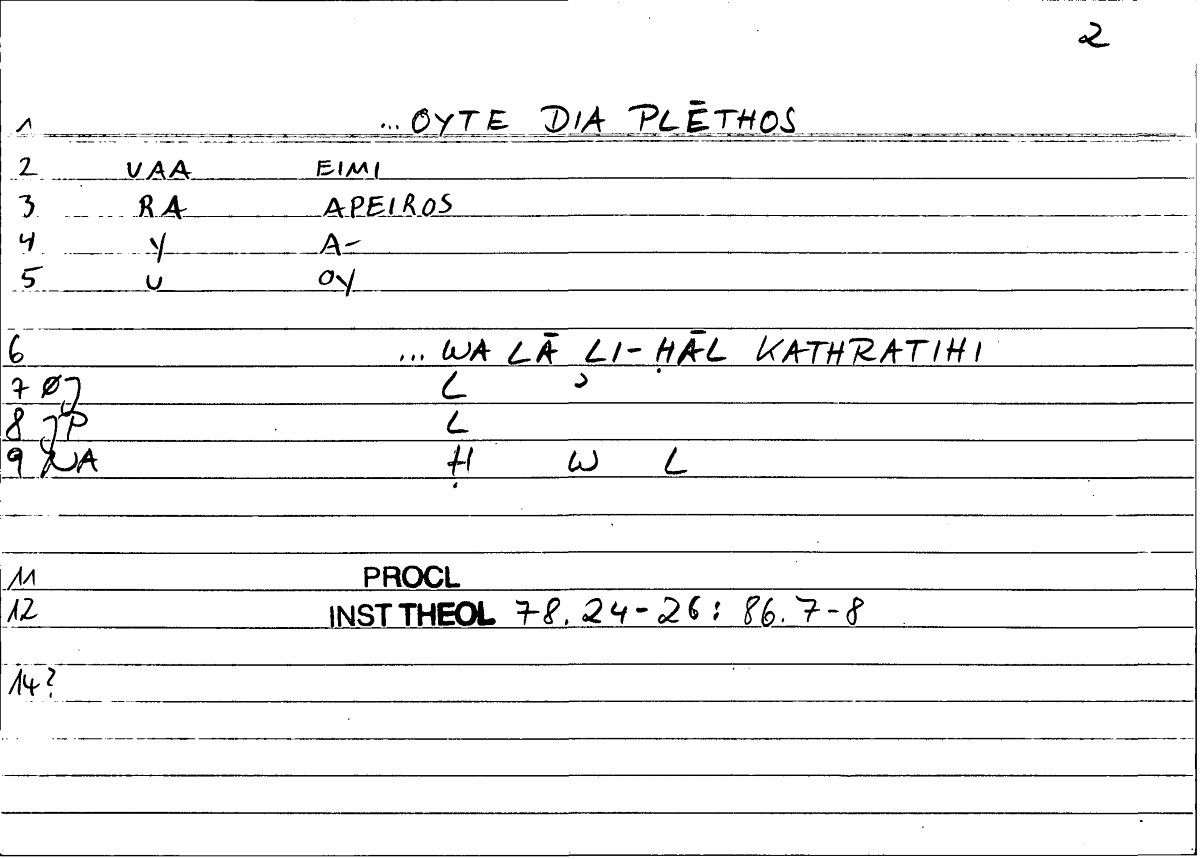 2
1 ... OYTE DIA PLĒTHOS
2 VAA EIMI
3 RA APEIROS
4 Y A-
5 U OY
6 ... WA LĀ LI-ḤĀL KATHRATIHI
7 Ø] L ʾ
8 ]P L
9 NA Ḥ W L
11 PROCL
12 INST THEOL 78.24-26: 86.7-8
14?